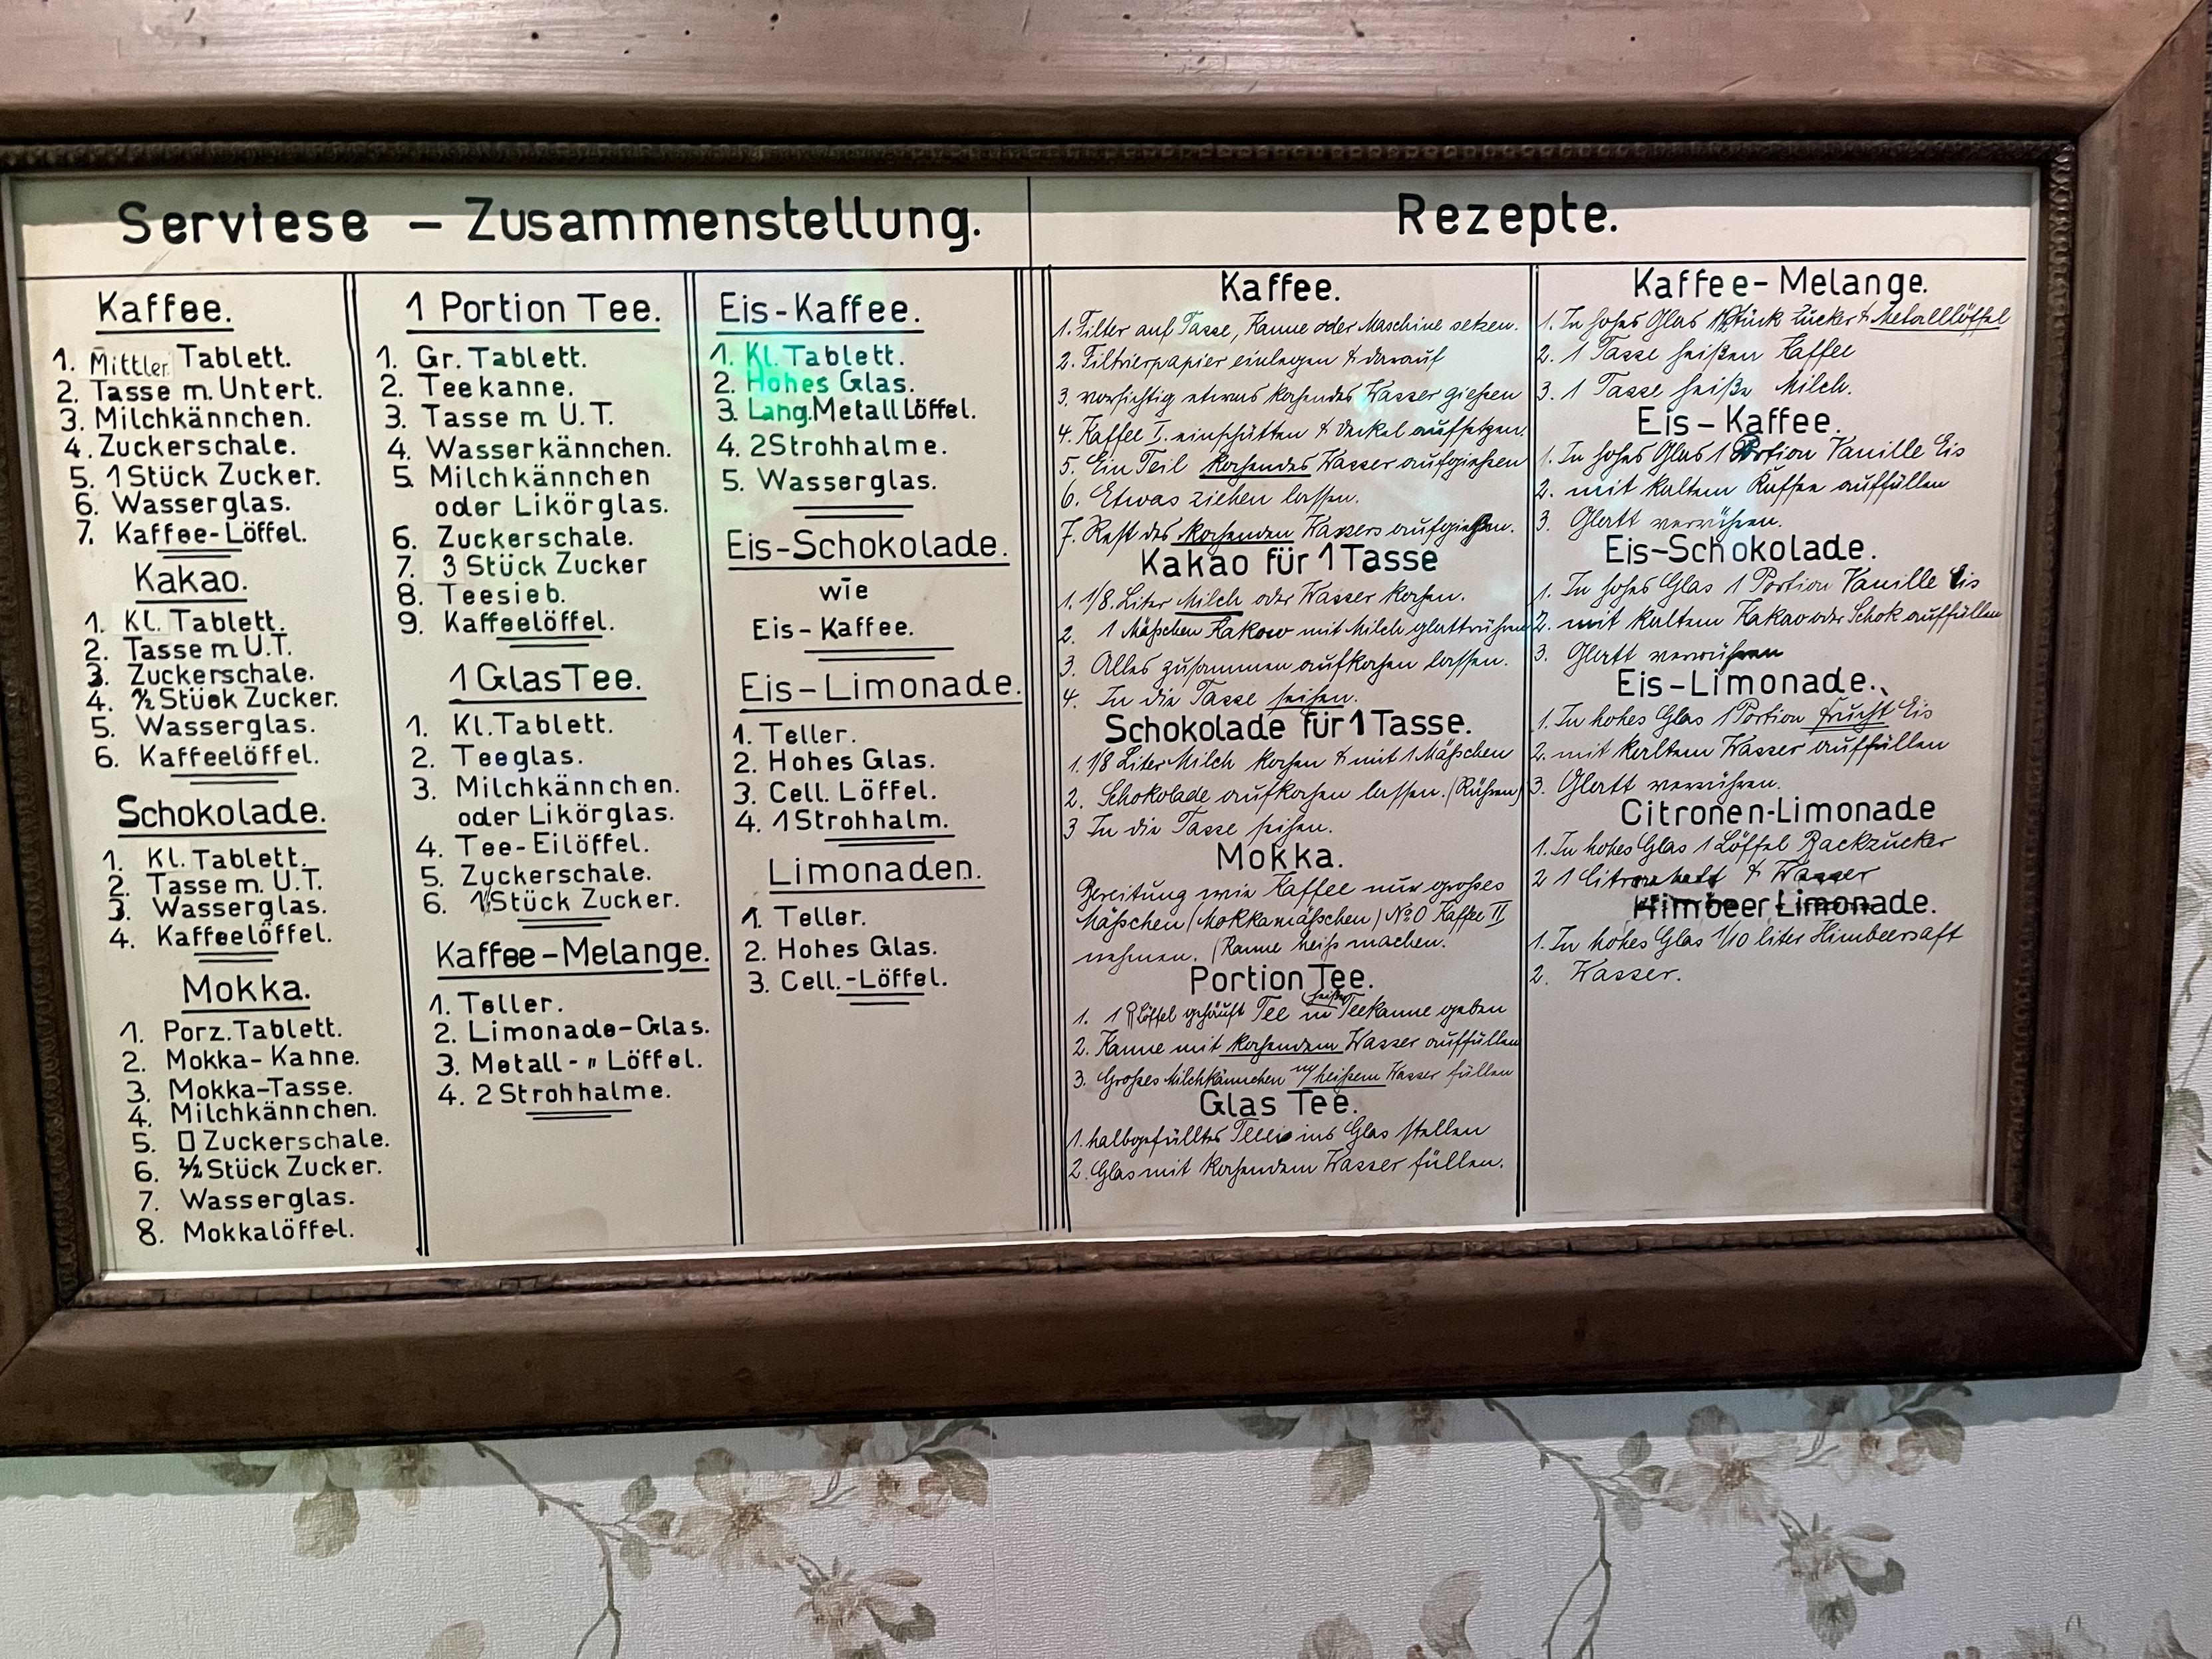 Serviese – Zusammenstellung.
Kaffee.
1. Mittler Tablett.
2. Tasse m. Untert.
3. Milchkännchen.
4. Zuckerschale.
5. 1 Stück Zucker.
6. Wasserglas.
7. Kaffee-Löffel.
Kakao.
1. Kl. Tablett.
2. Tasse m U.T.
3. Zuckerschale.
4. ½ Stück Zucker.
5. Wasserglas.
6. Kaffeelöffel.
Schokolade.
1. Kl. Tablett.
2. Tasse m. U.T.
3. Wasserglas.
4. Kaffeelöffel.
Mokka.
1. Porz. Tablett.
2. Mokka-Kanne.
3. Mokka-Tasse.
4. Milchkännchen.
5. Zuckerschale.
6. Stück Zucker.
7. Wasserglas.
8. Mokkalöffel.
1 Portion Tee.
1. Gr. Tablett.
2. Teekanne.
3. Tasse m U.T.
4. Wasserkännchen.
5. Milchkännchen
oder Likörglas.
6. Zuckerschale.
7. 3 Stück Zucker
8. Teesieb.
9. Kaffeelöffel.
1 Glas Tee.
1. Kl. Tablett.
2. Teeglas.
3. Milchkännchen.
oder Likörglas.
4. Tee-Eilöffel.
5. Zuckerschale.
6. 1 Stück Zucker.
Kaffee-Melange.
1. Teller.
2. Limonade-Glas.
3. Metall-" Löffel.
4. 2 Strohhalme.
Eis-Kaffee.
1. Kl. Tablett.
2. Hohes Glas.
3. Lang. Metall Löffel.
4. 2 Strohhalme.
5. Wasserglas.
Eis-Schokolade.
wie
Eis-Kaffee.
Eis-Limonade.
1. Teller.
2. Hohes Glas.
3. Cell. Löffel.
4. 1 Strohhalm.
Limonaden.
1. Teller.
2. Hohes Glas.
3. Cell.-Löffel.
Rezepte.
Kaffee.
1. Filter auf Tasse, Kanne oder Maschine setzen.
2. Filtrierpapier einlegen & darauf
3. vorsichtig etwas kochendes Wasser gießen
4. Kaffee I. einschütten & Deckel aufsetzen.
5. Ein Teil kochendes Wasser aufgießen
6. Etwas ziehen lassen.
7. Rest des kochenden Wassers aufgießen.
Kakao für 1 Tasse
1. 1/8 Liter Milch oder Wasser kochen.
2. 1 Mäßchen Kakao mit Milch glattrühren
3. Alles zusammen aufkochen lassen.
4. In die Tasse seihen.
Schokolade für 1 Tasse.
1. 1/8 Liter Milch kochen & mit 1 Mäßchen
2. Schokolade aufkochen lassen. (Rühren)
3 In die Tasse seihen.
Mokka.
Bereitung wie Kaffee nur großes
Mäßchen (Mokkamäßchen) No 0 Kaffee II
nehmen. (Kanne heiß machen.
Portion Tee.
1. 1 Löffel gehäuft Tee in heiße Teekanne geben
2. Kanne mit kochendem Wasser auffüllen
3. Großes Milchkännchen m/ heißem Wasser füllen
Glas Tee.
1. halbgefülltes ins Glas stellen
2. Glas mit kochendem Wasser füllen.
Kaffee-Melange.
1. In hohes Glas 1 Stück Zucker & Metallöffel
2. 1 Tasse heißen Kaffee
3. 1 Tasse heiße Milch.
Eis-Kaffee.
1. In hohes Glas 1 Portion Vanille Eis
2. mit kaltem Kaffee auffüllen
3. Glatt verrühren.
Eis-Schokolade.
1. In hohes Glas 1 Portion Vanille Eis
2. mit kaltem Kakao oder Schok auffüllen
3. Glatt verrühren
Eis-Limonade.
1. In hohes Glas 1 Portion Frucht Eis
2. mit kaltem Wasser auffüllen
3. Glatt verrühren.
Citronen-Limonade
1. In hohes Glas 1 Löffel Backzucker
2 1 Citronensaft & Wasser
Himbeer Limonade.
1. In hohes Glas 1/10 liter Himbeersaft
2. Wasser.